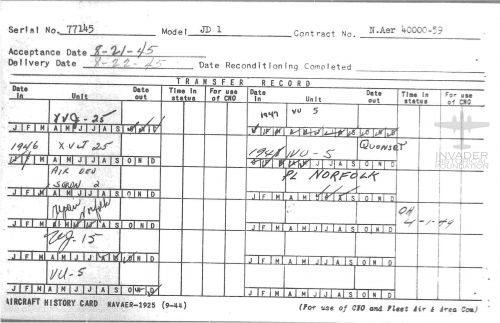 Serial No. 77145 Model JD 1 Contract No. N.Aer 40000-59
Acceptance Date 8-21-45
Delivery Date 8-22-45 Date Reconditioning Completed
TRANSFER RECORD
Date in Unit Date out Time in status For use of CNO Date in Unit Date out Time in status For use of CNO
XVJ-25 1947 VU 5
J F M A M J J A S O N D
1946 XVUT 25 1948 VU-5 QUONSET
J F M A M J J A S O N D J F M A M J J A S O N D
AIR DEV PL NORFOLK
SQRDN 2
J F M A M J J A S O N D J F M A M J J A S O N D
Norfolk OH
4-1-49
J F M A M J J A S O N D J F M A M J J A S O N D
VJ-15
J F M A M J J A S O N D J F M A M J J A S O N D
VU-5
J F M A M J J A S O N D J F M A M J J A S O N D
AIRCRAFT HISTORY CARD NAVAER-1925 (9-44) (For use of CNO and Fleet Air & Area Com)
INVADER
FOUNDATION